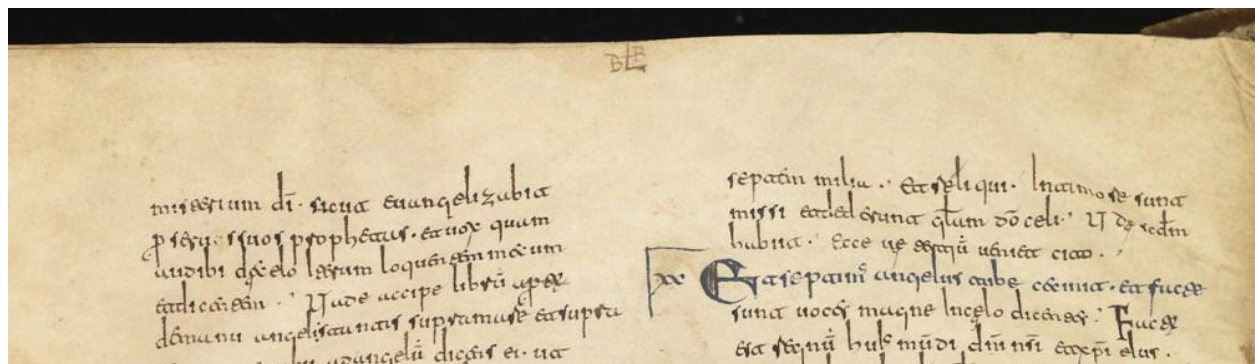 BLB
misterium dı̅ · sicut euangelizabit
ꝑ seruos suos prophetas · et uox quam
audibi de celo iterum loquentem mecum
et dicentem · Uade accipe librū aper
de manu angeli stantis supra mare et supra
ad angelū dicens ei · ut
septem milia · Et reliqui · In timore sunt
missi et dederunt gl̅am dō celi ·
habiit · Ecce ue tertiū ueniet cito ·
xx Et septim᾽ angelus tube cecinit · et facte
sunt uoces magne In celo dicentes · Fac
est regnū hui᾽ mūdi dn̅i nsı̅ et xp̅i eius ·